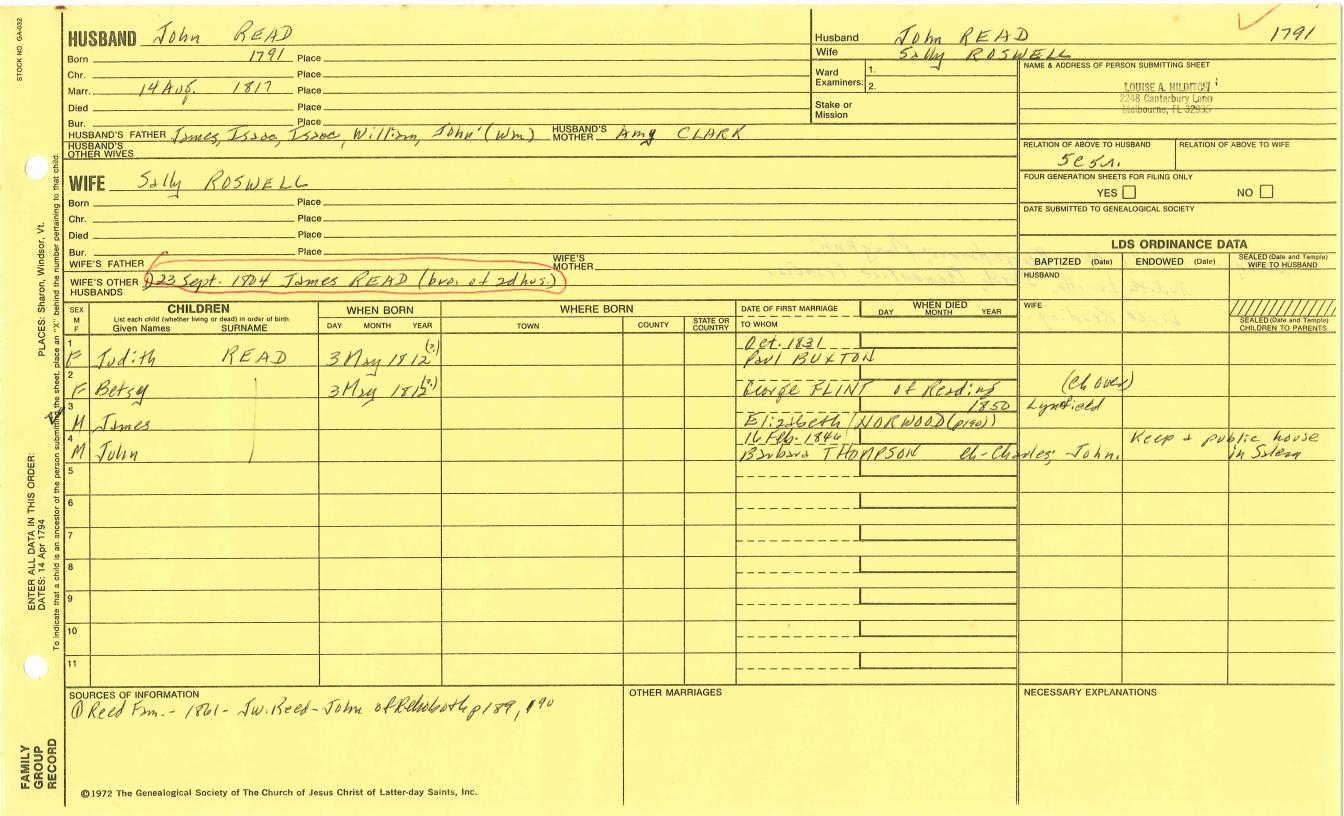 STOCK NO. GA-032
HUSBAND John READ
Born 1791 Place
Chr. Place
Marr. 14 Aug. 1817 Place
Died Place
Bur. Place
HUSBAND'S FATHER James, Isaac, Isaac, William, John' (Wm) HUSBAND'S MOTHER Amy CLARK
HUSBAND'S OTHER WIVES
Husband John READ 1791
Wife Sally ROSWELL
Ward Examiners: 1.
2.
Stake or Mission
NAME & ADDRESS OF PERSON SUBMITTING SHEET
LOUISE A. HILDITCH
2248 Canterbury Lane
Melbourne, FL 32935
RELATION OF ABOVE TO HUSBAND RELATION OF ABOVE TO WIFE
FOUR GENERATION SHEETS FOR FILING ONLY
YES NO
DATE SUBMITTED TO GENEALOGICAL SOCIETY
WIFE Sally ROSWELL
Born Place
Chr. Place
Died Place
Bur. Place
WIFE'S FATHER WIFE'S MOTHER
WIFE'S OTHER HUSBANDS 1) 23 Sept. 1804 James READ (bro. of 2d hus.)
LDS ORDINANCE DATA
BAPTIZED (Date) ENDOWED (Date) SEALED (Date and Temple) WIFE TO HUSBAND
HUSBAND
WIFE
SEALED (Date and Temple) CHILDREN TO PARENTS
SEX M F
CHILDREN
List each child (whether living or dead) in order of birth
Given Names SURNAME
WHEN BORN
DAY MONTH YEAR
WHERE BORN
TOWN COUNTY STATE OR COUNTRY
DATE OF FIRST MARRIAGE
TO WHOM
WHEN DIED
DAY MONTH YEAR
1 Oct. 1831
F Judith READ 3 May 1812 (?) Paul BUXTON
2
F Betsy 3 May 1812 (?) George FLINT of Reading (Ch over)
3 1850 Lynnfield
M James Elizabeth NORWOOD (p190)
4 16 Feb. 1846 Keep a public house
M John Barbara THOMPSON ch - Charles, John. in Salem
5
6
7
8
9
10
11
SOURCES OF INFORMATION
① Reed Fam. - 1861 - J.W. Reed - John of Rehoboth p 189, 190
OTHER MARRIAGES
NECESSARY EXPLANATIONS
©1972 The Genealogical Society of The Church of Jesus Christ of Latter-day Saints, Inc.
FAMILY GROUP RECORD
ENTER ALL DATA IN THIS ORDER:
DATES: 14 Apr 1794 PLACES: Sharon, Windsor, Vt.
To indicate that a child is an ancestor of the person submitting the sheet, place an "X" behind the number pertaining to that child.